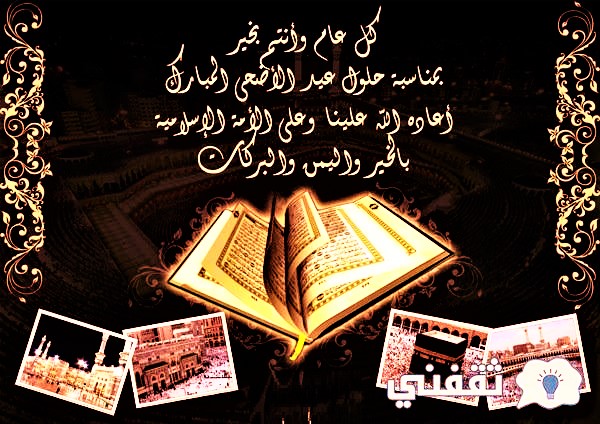 كل عام وأنتم بخير
بمناسبة حلول عيد الأضحى المبارك
أعاده الله علينا وعلى الأمة الإسلامية
بالخير واليمن والبركات
ثقفني